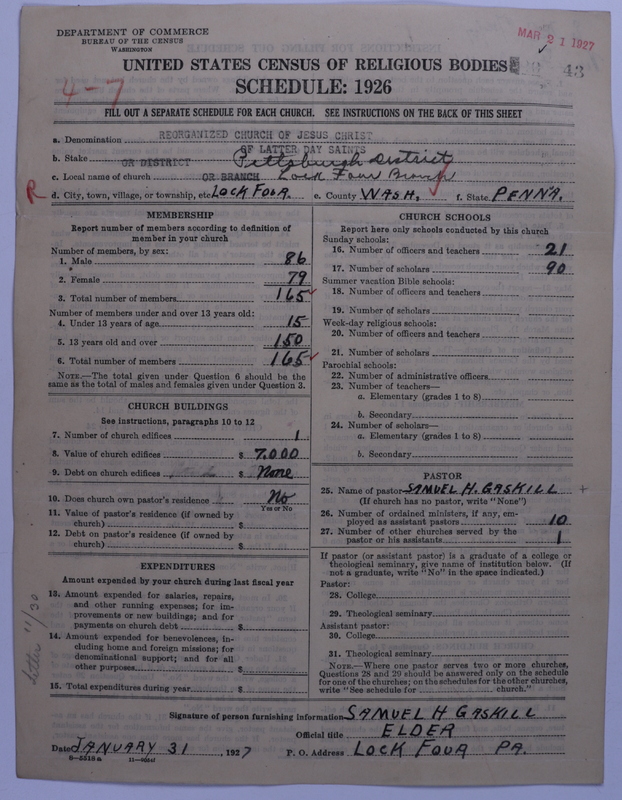 DEPARTMENT OF COMMERCE
BUREAU OF THE CENSUS
WASHINGTON
MAR 21 1927
UNITED STATES CENSUS OF RELIGIOUS BODIES
43
4-7
SCHEDULE: 1926
FILL OUT A SEPARATE SCHEDULE FOR EACH CHURCH. SEE INSTRUCTIONS ON THE BACK OF THIS SHEET
a. Denomination REORGANIZED CHURCH OF JESUS CHRIST
OF LATTER DAY SAINTS
b. Stake OR DISTRICT Pittsburgh District
c. Local name of church OR BRANCH Lock Four Branch
R d. City, town, village, or township, etc. LOCK FOUR. e. County WASH. f. State PENN'A.
MEMBERSHIP
Report number of members according to definition of
member in your church
Number of members, by sex:
1. Male 86
2. Female 79
3. Total number of members 165
Number of members under and over 13 years old:
4. Under 13 years of age 15
5. 13 years old and over 150
6. Total number of members 165
NOTE.—The total given under Question 6 should be the
same as the total of males and females given under Question 3.
CHURCH BUILDINGS
See instructions, paragraphs 10 to 12
7. Number of church edifices 1
8. Value of church edifices $ 7,000
9. Debt on church edifices $ None
10. Does church own pastor's residence No
Yes or No
11. Value of pastor's residence (if owned by
church) $
12. Debt on pastor's residence (if owned by
church) $
EXPENDITURES
Amount expended by your church during last fiscal year
13. Amount expended for salaries, repairs,
and other running expenses; for im-
provements or new buildings; and for
payments on church debt $
14. Amount expended for benevolences, in-
cluding home and foreign missions; for
denominational support; and for all
other purposes $
15. Total expenditures during year $
Letter 11/30
CHURCH SCHOOLS
Report here only schools conducted by this church
Sunday schools:
16. Number of officers and teachers 21
17. Number of scholars 90
Summer vacation Bible schools:
18. Number of officers and teachers
19. Number of scholars
Week-day religious schools:
20. Number of officers and teachers
21. Number of scholars
Parochial schools:
22. Number of administrative officers
23. Number of teachers—
a. Elementary (grades 1 to 8)
b. Secondary
24. Number of scholars—
a. Elementary (grades 1 to 8)
b. Secondary
PASTOR
25. Name of pastor SAMUEL H. GASKILL +
(If church has no pastor, write "None")
26. Number of ordained ministers, if any, em-
ployed as assistant pastors 10
27. Number of other churches served by the
pastor or his assistants 1
If pastor (or assistant pastor) is a graduate of a college or
theological seminary, give name of institution below. (If
not a graduate, write "No" in the space indicated.)
Pastor:
28. College
29. Theological seminary
Assistant pastor:
30. College
31. Theological seminary
NOTE.—Where one pastor serves two or more churches,
Questions 28 and 29 should be answered only on the schedule
for one of the churches; on the schedules for the other churches,
write "See schedule for church."
Signature of person furnishing information SAMUEL H GASKILL
Official title ELDER
Date JANUARY 31, 1927 P. O. Address LOCK FOUR PA.
8-5518a